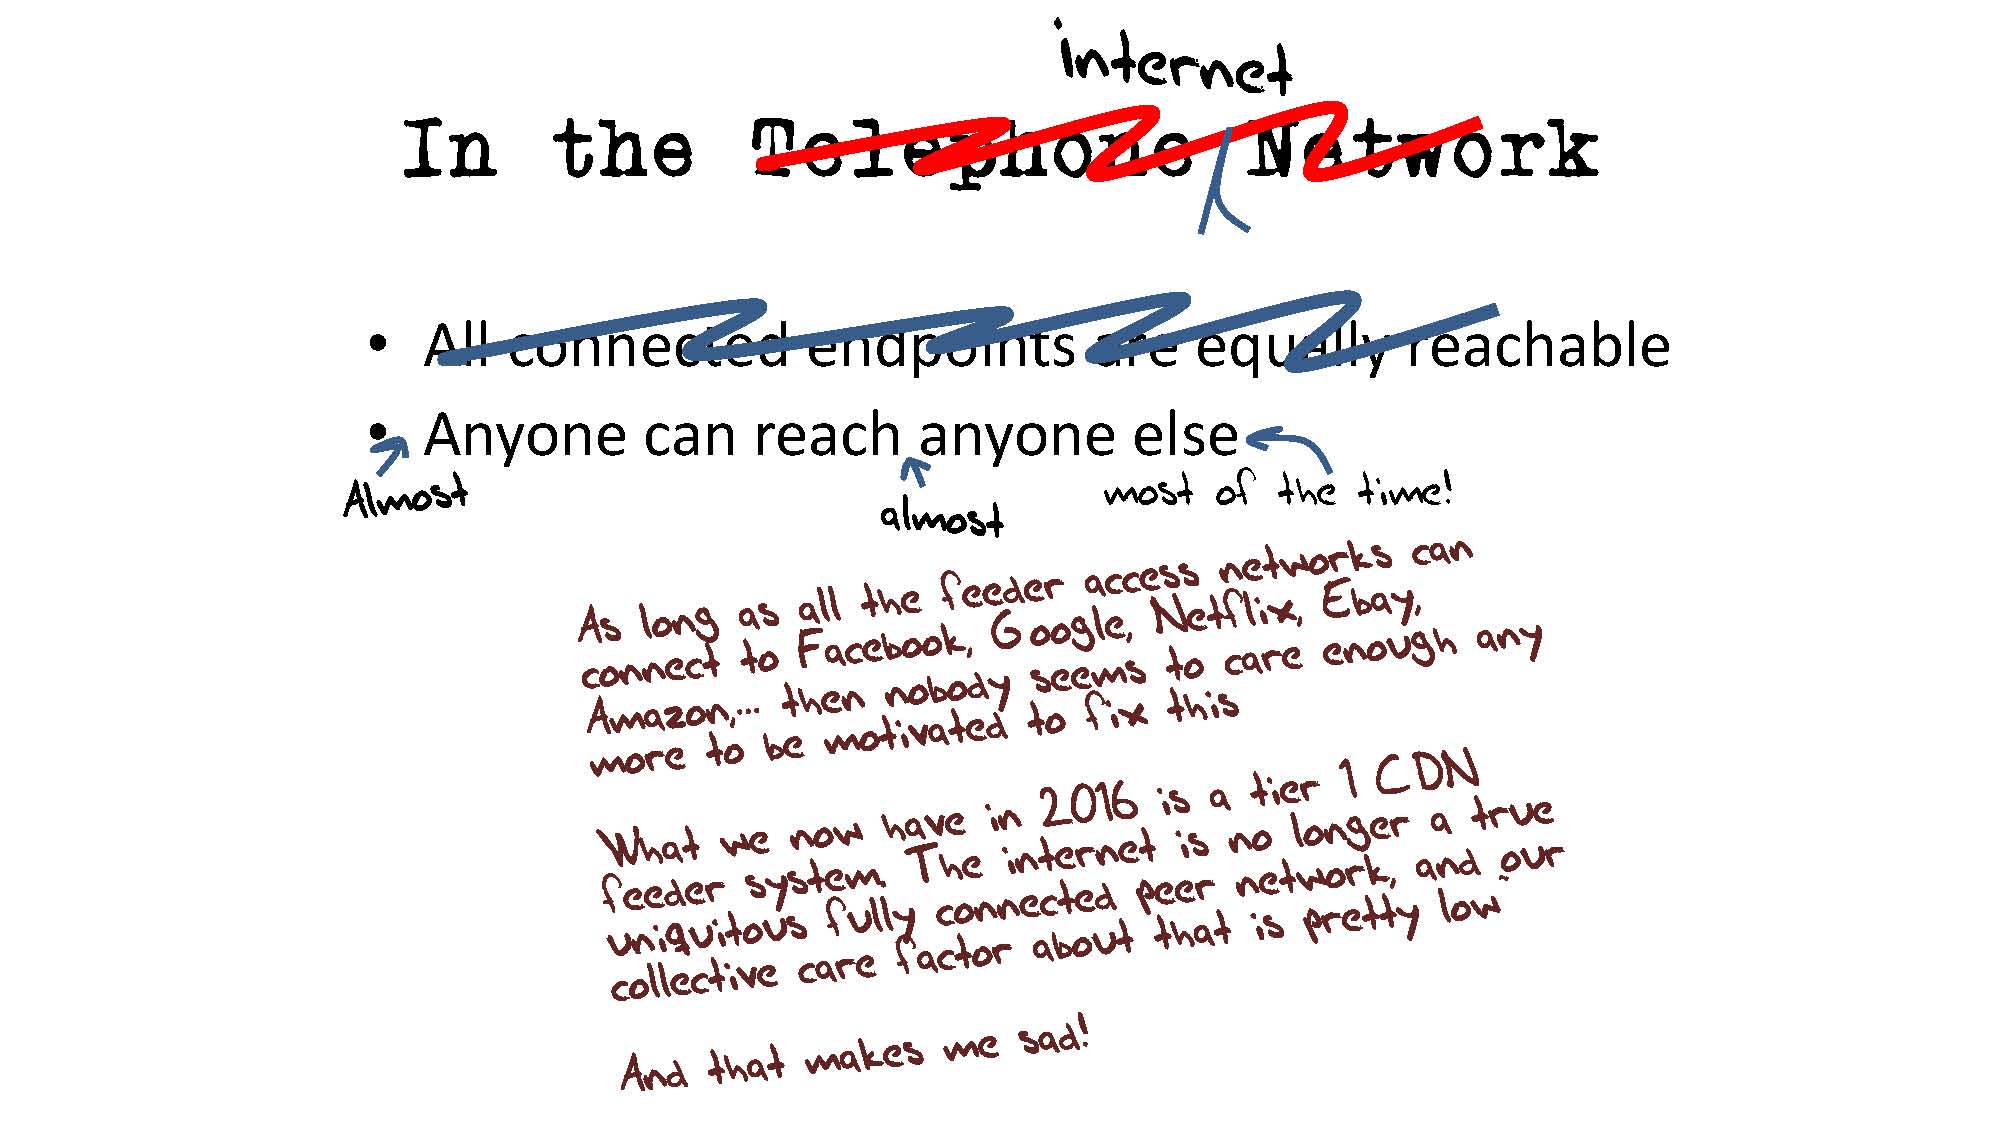 internet
In the Telephone Network
• All connected endpoints are equally reachable
• Anyone can reach anyone else
Almost
almost
most of the time!
As long as all the feeder access networks can
connect to Facebook, Google, Netflix, Ebay,
Amazon,... then nobody seems to care enough any
more to be motivated to fix this
What we now have in 2016 is a tier 1 CDN
feeder system. The internet is no longer a true
uniquitous fully connected peer network, and our
collective care factor about that is pretty low
And that makes me sad!